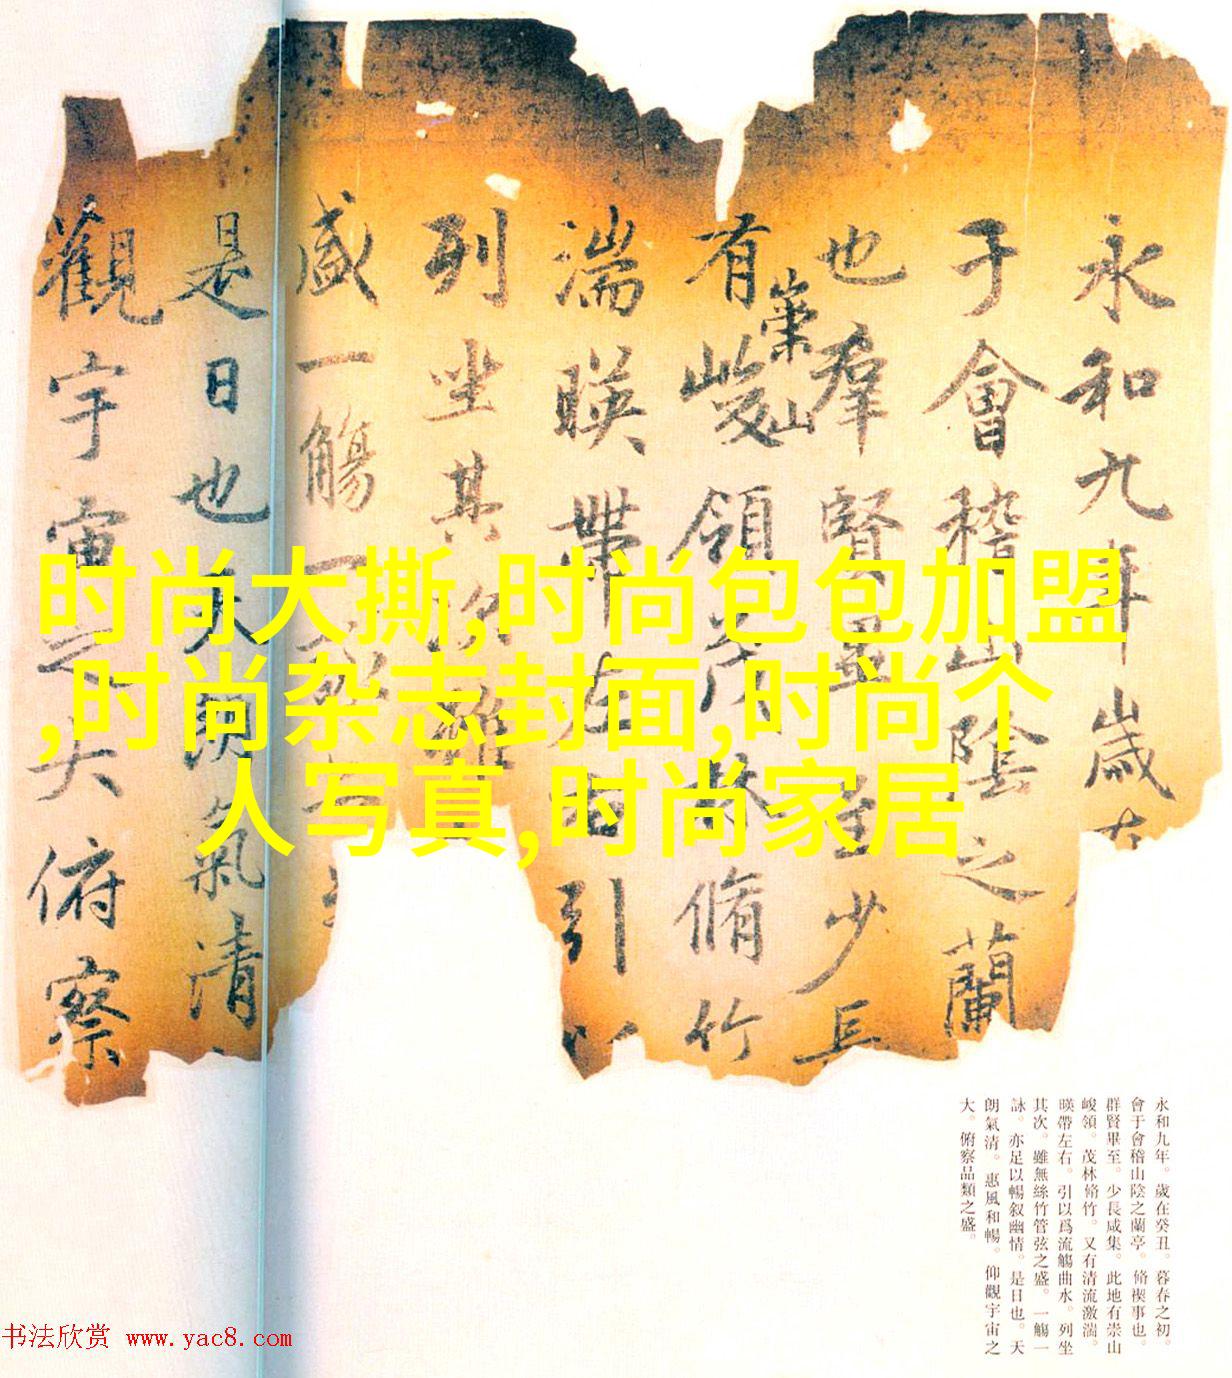 永和九年歲在
于會稽山陰之蘭
也羣賢畢至少長
有崇山峻領茂林脩竹
湍暎帶左右引以
列坐其次雖
盛一觴一詠亦
是日也天朗氣清
觀宇宙之大俯察
时尚大撕,时尚包包加盟
,时尚杂志封面,时尚个
人写真,时尚家居
永和九年。歲在癸丑。暮春之初。
會于會稽山陰之蘭亭。脩禊事也。
群賢畢至。少長咸集。此地有崇山
峻領。茂林脩竹。又有清流激湍。
暎帶左右。引以爲流觴曲水。列坐
其次。雖無絲竹管弦之盛。一觴一
詠。亦足以暢叙幽情。是日也。天
朗氣清。惠風和暢。仰觀宇宙之
大。俯察品類之盛。
书法欣赏 www.yac8.com